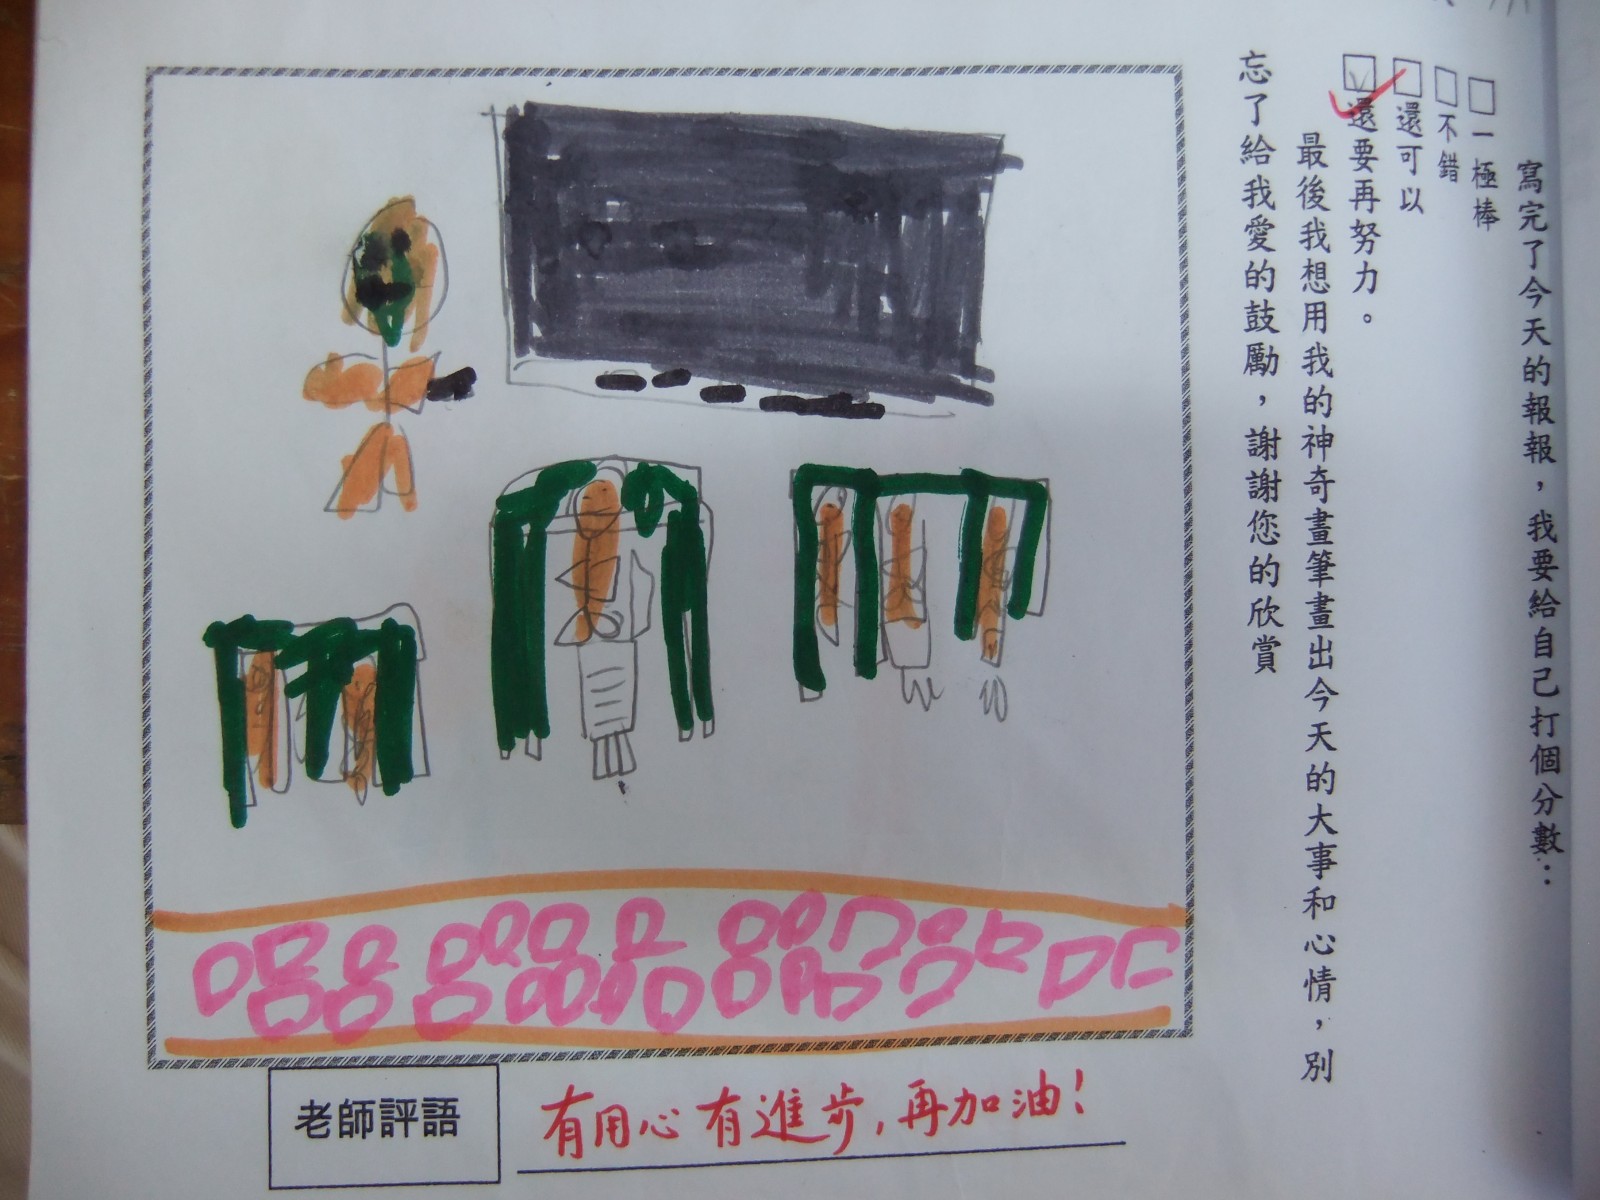 寫完了今天的報報，我要給自己打個分數：
□一極棒
□不錯
□還可以
☑還要再努力。
最後我想用我的神奇畫筆畫出今天的大事和心情，別
忘了給我愛的鼓勵，謝謝您的欣賞
老師評語
有用心有進步，再加油！